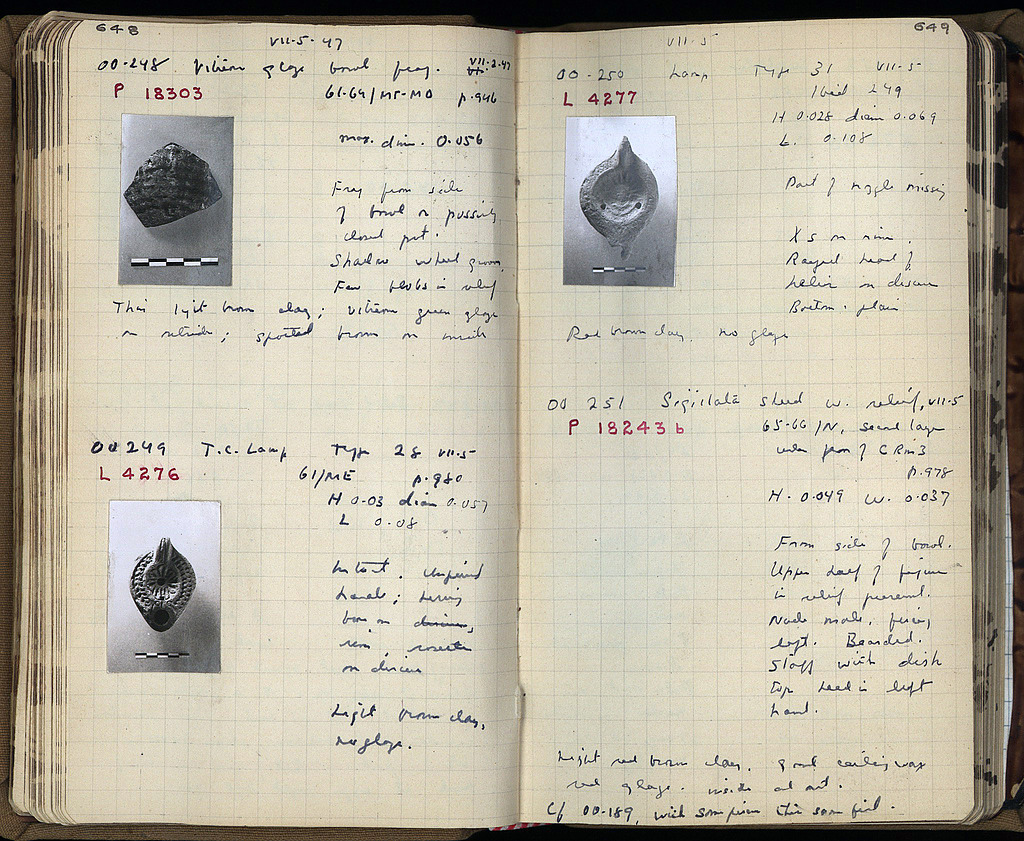 648
VII-5-47
00-248 Vitreous glaze bowl frag. VII-2-47
P 18303
61-64/ΜΣ-ΜΘ p.946
max. dim. 0.056
Frag from side
of bowl or possibly
closed pot.
Shallow wheel grooves,
Few blobs in relief
Thin light brown clay; vitreous green glaze
on outside; spotted brown on inside
00 249 T.C. Lamp Type 28 VII-5
L 4276
61/ΜΕ p.980
H 0.03 diam 0.057
L 0.08
Intact. Unpierced
handle;
bone on discus,
rim, rosette
on discus
Light brown clay,
no glaze.
649
VII-5
00-250 Lamp Type 31 VII-5
L 4277
Ibid 249
H 0.028 diam 0.069
L. 0.108
Part of nozzle missing
Xs on rim.
Rayed head of
helios on discus
Bottom plain
Red brown clay. no glaze
00 251 Sigillata sherd w. relief, VII-5
P 18243 b
65-66/N, second layer
under floor of C Rm 3
p.978
H. 0.049 W. 0.037
From side of bowl.
Upper half of figure
in relief preserved.
Nude male, facing
left. Bearded.
Staff with disk
top held in left
hand.
Light red brown clay. good sealing wax
red glaze. inside and out.
Cf 00-189, with same figure